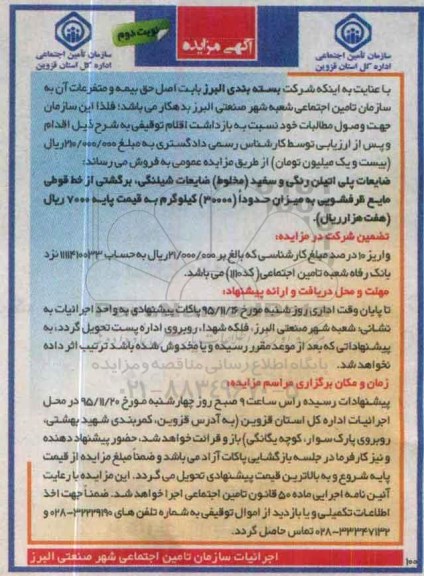 آگهی مزایده
نوبت دوم
سازمان تأمین اجتماعی
اداره کل استان قزوین
سازمان تأمین اجتماعی
اداره کل استان قزوین
با عنایت به اینکه شرکت بسته بندی البرز بابت اصل حق بیمه و متفرعات آن به
سازمان تامین اجتماعی شعبه شهر صنعتی البرز بدهکار می باشد؛ فلذا این سازمان
جهت وصول مطالبات خود نسبت به بازداشت اقلام توقیفی به شرح ذیل اقدام
و پس از ارزیابی توسط کارشناس رسمی دادگستری به مبلغ ۲۱۰/۰۰۰/۰۰۰ریال
(بیست و یک میلیون تومان) از طریق مزایده عمومی به فروش می رساند:
ضایعات پلی اتیلن رنگی و سفید (مخلوط) ضایعات شیلنگی، برگشتی از خط قوطی
مایع ظرفشویی به میزان حدوداً (۳۰۰۰۰) کیلوگرم به قیمت پایه ۷۰۰۰ ریال
(هفت هزار ریال).
تضمین شرکت در مزایده:
واریز ۱۰ درصد مبلغ کارشناسی که بالغ بر ۲۱/۰۰۰/۰۰۰ریال به حساب ۱۱۱۱۴۱۰۰۳۳ نزد
بانک رفاه شعبه تامین اجتماعی (کد ۱۱۱۰) می باشد.
مهلت و محل دریافت و ارائه پیشنهاد:
تا پایان وقت اداری روز شنبه مورخ ۹۵/۱۱/۱۶ پاکات پیشنهادی به واحد اجرائیات به
نشانی: شعبه شهر صنعتی البرز، فلکه شهدا، روبروی اداره پست تحویل گردد، به
پیشنهاداتی که بعد از موعد مقرر رسیده و یا مخدوش شده باشد ترتیب اثر داده
نخواهد شد.
پایگاه اطلاع رسانی مناقصه و مزایده
زمان و مکان برگزاری مراسم مزایده:
پیشنهادات رسیده رأس ساعت ۹ صبح روز چهارشنبه مورخ ۹۵/۱۱/۲۰ در محل
اجرائیات اداره کل استان قزوین (به آدرس قزوین، کمربندی شهید بهشتی،
روبروی پارک سوار، کوچه یگانگی) باز و قرائت خواهد شد، حضور پیشنهاد دهنده
و نیز کارفرما در جلسه بازگشایی پاکات آزاد می باشد و ضمناً مبلغ مزایده از قیمت
پایه شروع و به بالاترین قیمت پیشنهادی تحویل می گردد. این مزایده با رعایت
آئین نامه اجرایی ماده ۵۰ قانون تامین اجتماعی اجرا خواهد شد. ضمناً جهت اخذ
اطلاعات تکمیلی و یا بازدید از اموال توقیفی به شماره تلفن های ۳۲۲۲۹۱۹۰-۰۲۸ و
۳۳۳۴۷۱۳۲-۰۲۸ تماس حاصل گردد.
اجرائیات سازمان تامین اجتماعی شهر صنعتی البرز
۱۰۰